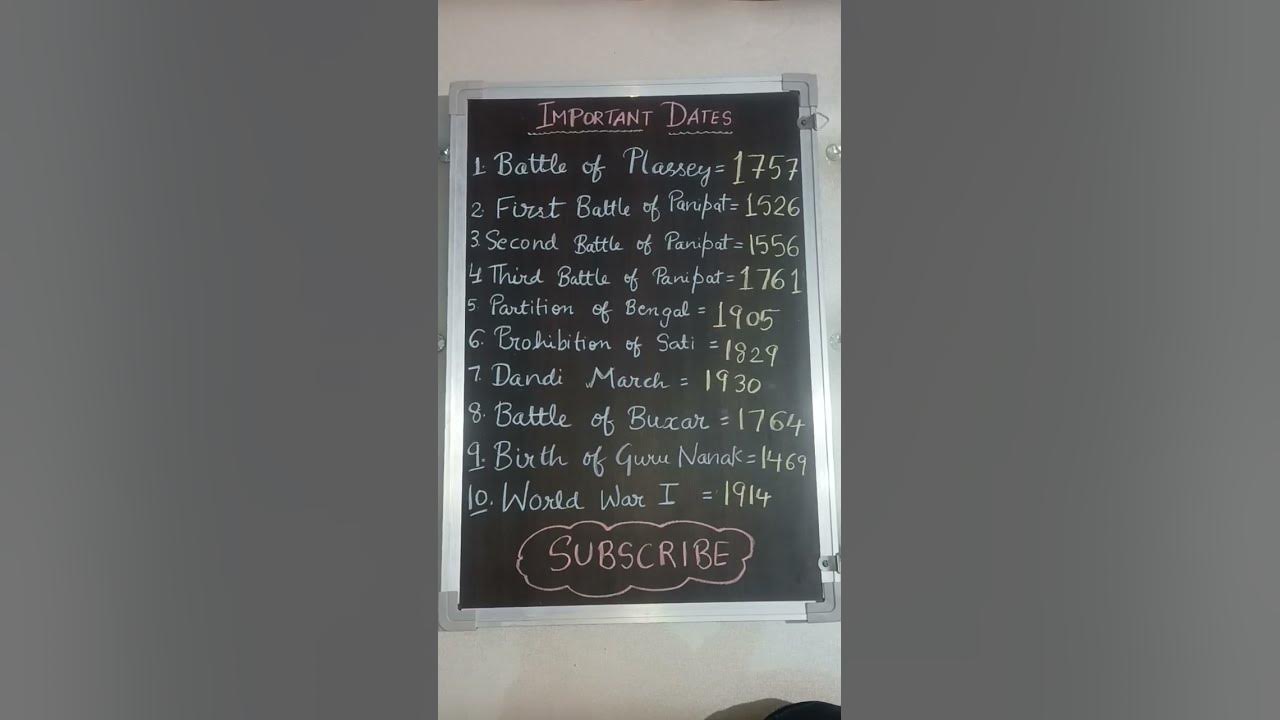 IMPORTANT DATES
1. Battle of Plassey = 1757
2. First Battle of Panipat = 1526
3. Second Battle of Panipat = 1556
4. Third Battle of Panipat = 1761
5. Partition of Bengal = 1905
6. Prohibition of Sati = 1829
7. Dandi March = 1930
8. Battle of Buxar = 1764
9. Birth of Guru Nanak = 1469
10. World War I = 1914
SUBSCRIBE